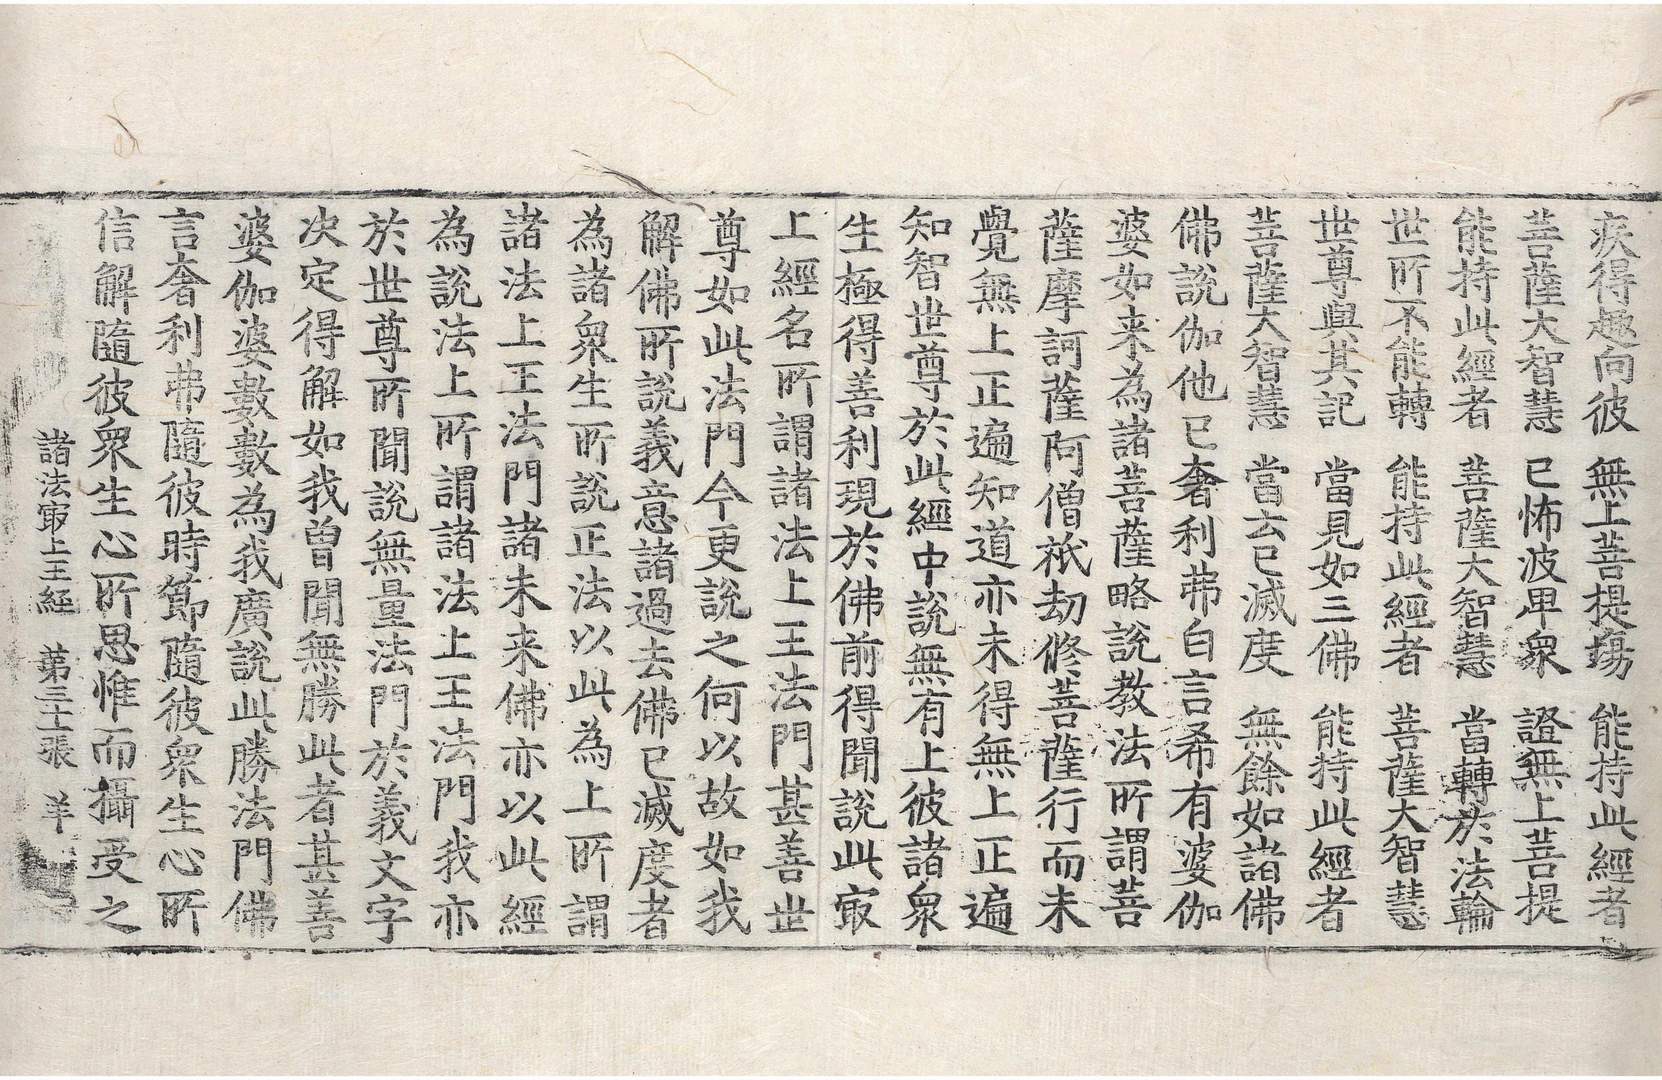 疾得趣向彼　無上菩提場　能持此經者
菩薩大智慧　已怖波卑衆　證無上菩提
能持此經者　菩薩大智慧　當轉於法輪
世所不能轉　能持此經者　菩薩大智慧
世尊與其記　當見如三佛　能持此經者
菩薩大智慧　當去已滅度　無餘如諸佛
佛說伽他已奢利弗白言希有婆伽
婆如来為諸菩薩略說教法所謂菩
薩摩訶薩阿僧祇劫修菩薩行而未
覺無上正遍知道亦未得無上正遍
知智世尊於此經中說無有上彼諸衆
生極得善利現於佛前得聞說此㝡
上經名所謂諸法上王法門甚善世
尊如此法門今更說之何以故如我
解佛所說義意諸過去佛已滅度者
為諸衆生所說正法以此為上所謂
諸法上王法門諸未来佛亦以此經
為說法上所謂諸法上王法門我亦
於世尊所聞說無量法門於義文字
决定得解如我曾聞無勝此者甚善
婆伽婆數數為我廣說此勝法門佛
言奢利弗隨彼時節隨彼衆生心所
信解隨彼衆生心所思惟而攝受之
諸法㝡上王經　第三十張　羊